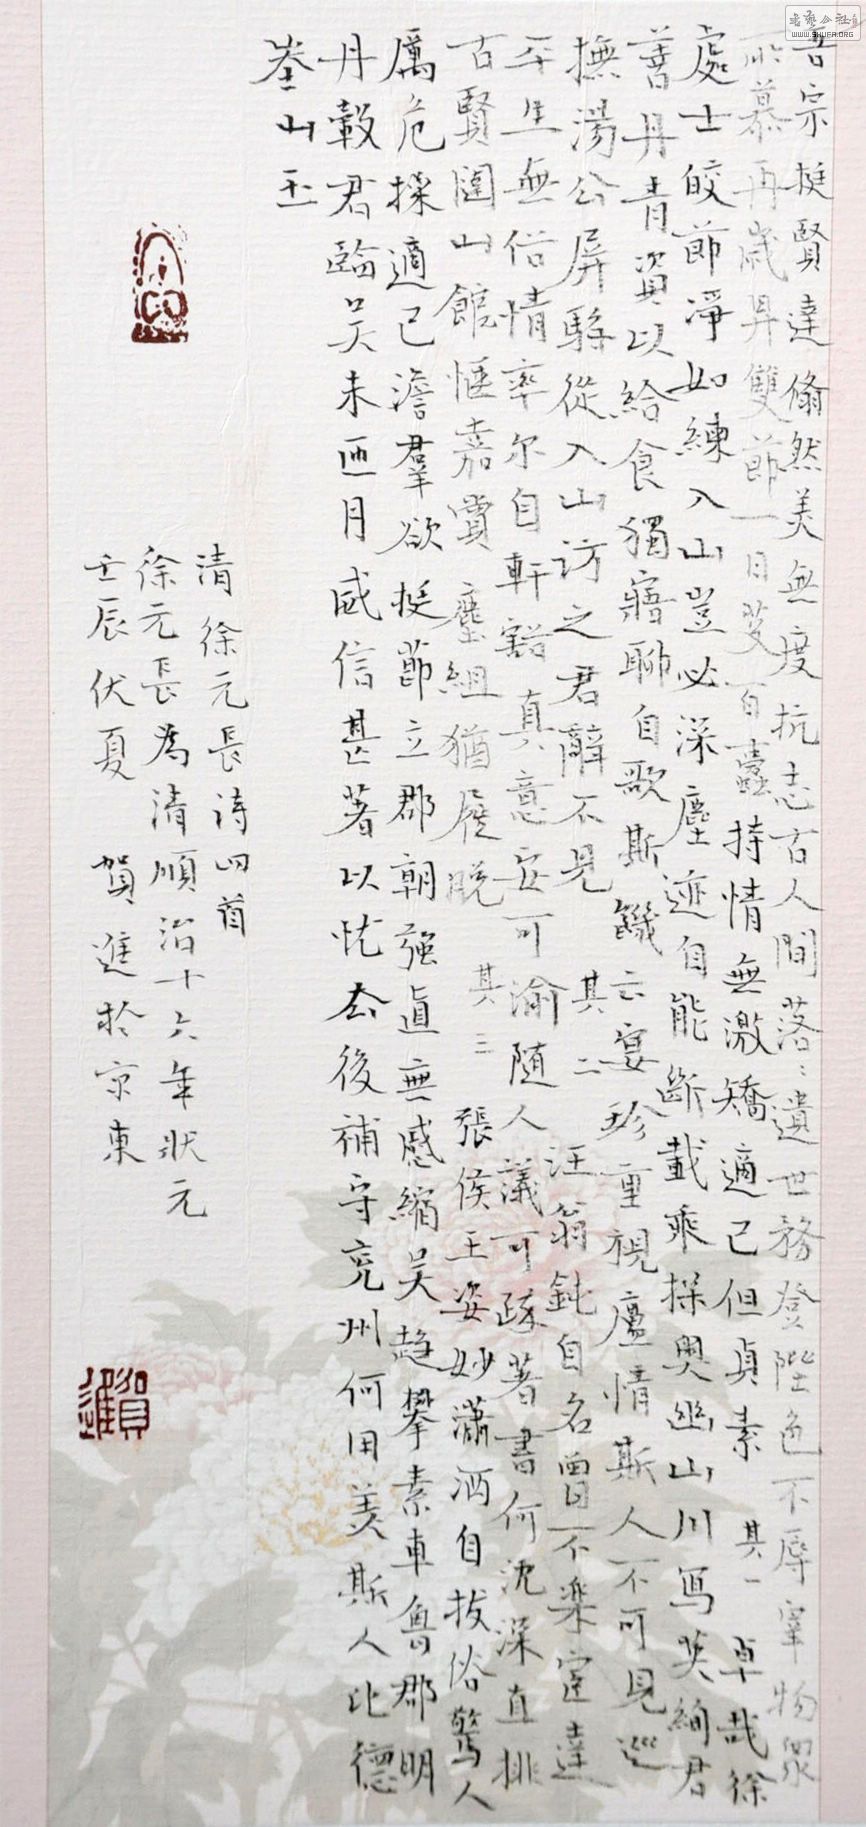 吾宗挺賢達翛然美無度抗志古人間落〻遺世務登陛色不辱宰物眾
所慕再歲昇雙節一日芟百蠹持情無激矯適己但貞素 其一 卓哉徐
處士皎節淨如練入山豈必深塵迹自能斷載乘探奧幽山川寫英絢君
善丹青資以給食獨寤聊自歌斯饑云宴珍重視廬情斯人不可見巡
撫湯公屏騶從入山訪之君辭不見 其二 汪翁鈍自名曾不樂宦達
平生無俗情率尔自軒豁真意安可渝隨人議可疎著書何沈深直排
古賢闥山館愜嘉賞塵組猶屣脫 其三 張侯玉姿妙瀟洒自拔俗驚人
厲危操適己澹羣欲挺節立郡朝強直無慼縮吴趋攀素車魯郡明
丹轂君臨吴未匝月威信甚著以忧去後補守兗州何用美斯人比德
崟山玉
清徐元長詩四首
徐元長為清順治十六年狀元
壬辰伏夏 賀進於京東
賀進
书艺公社
WWW.SHUFA.ORG